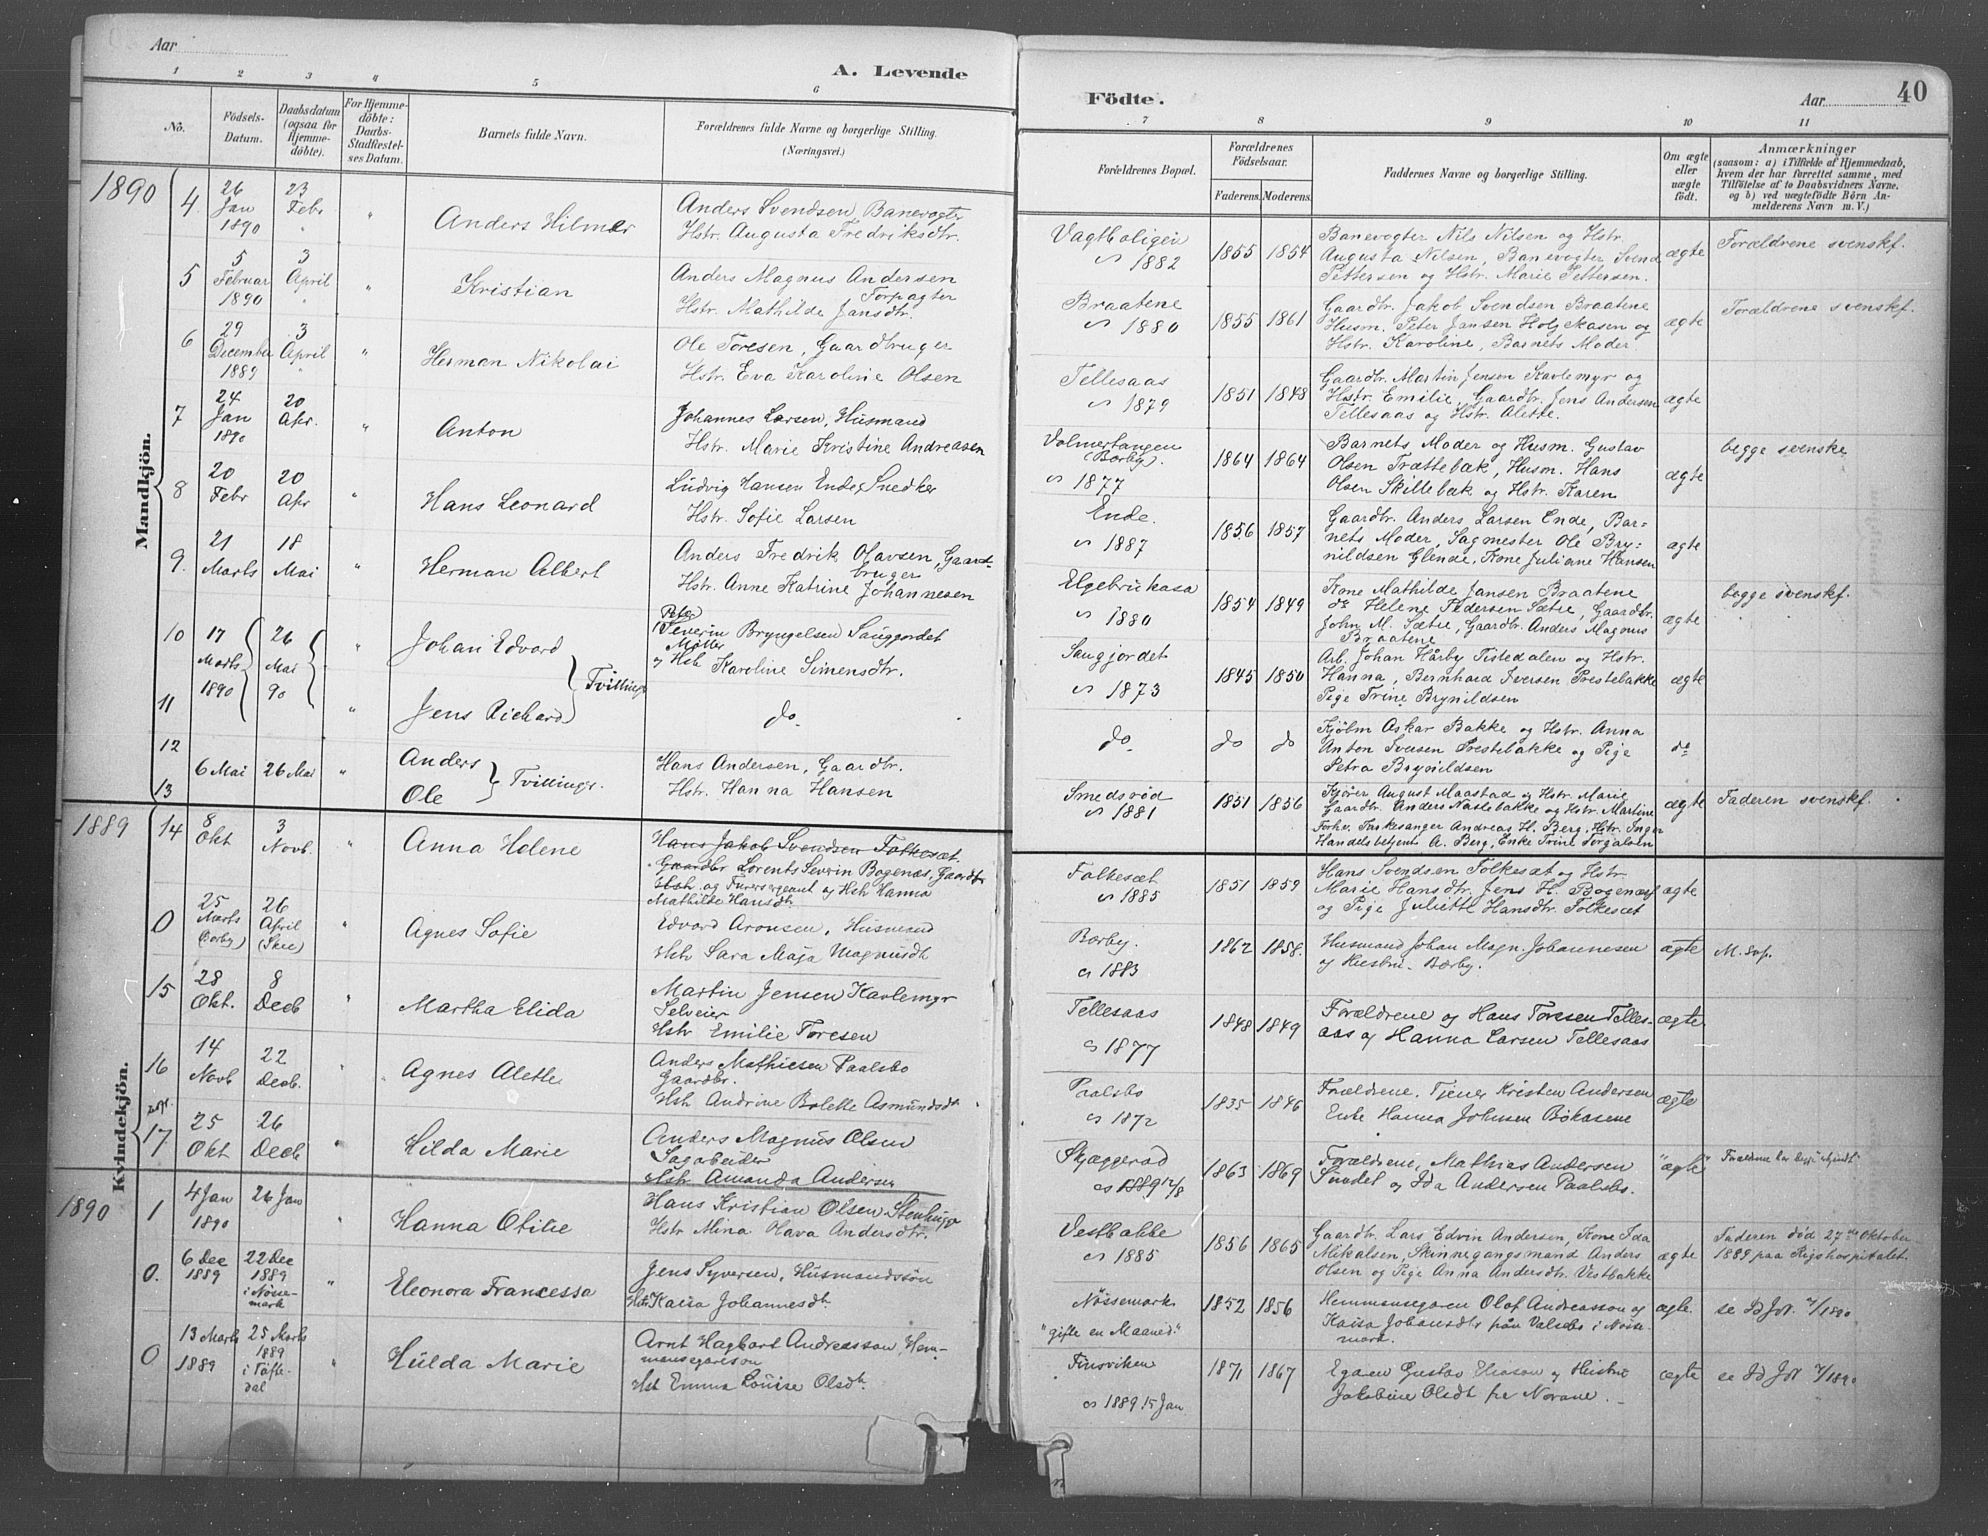 Aar
A. Levende
Födte.
Aar
40
1 2 3 4 5 6 7 8 9 10 11
No.
Födsels-
Datum.
Daabsdatum
(ogsaa for
Hjemme-
döbte).
For Hjemme-
döbte:
Daabs-
Stadfæstel-
ses Datum.
Barnets fulde Navn.
Forældrenes fulde Navne og borgerlige Stilling.
(Næringsvei.)
Forældrenes Bopæl.
Forældrenes
Födselsaar.
Faderens. Moderens.
Faddernes Navne og borgerlige Stilling.
Om ægte
eller
uægte
födt.
Anmærkninger
(saasom: a) i Tilfælde af Hjemmedaab,
hvem der har forrettet samme, med
Tilföielse af to Daabsvidners Navne.
og b) ved uægtefödte Börn An-
melderens Navn m. V.)
Mandkjön.
1890
4. 26 Jan 1890
23 Febr "
"
Anders Hilmar
Anders Svendsen, Banevogter
Hstr. Augusta Fredriksdtr.
Vagtboligen
1882
1855 1854
Banevogter Nils Nilsen og Hstr.
Augusta Nilsen, Banevogter, Svend
Pettersen og Hstr. Marie Pettersen.
ægte
Forældrene svenskf.
5 5 Februar 1890
3 April "
"
Kristian
Anders Magnus Andersen
Forpagter
Hstr. Mathilde Jansdtr.
Braatene
1880
1855 1861
Gaardbr. Jakob Svendsen Braatene
Husm. Peter Jansen Holgekasen og
Hstr. Karoline, Barnets Moder
ægte
Forældrene svenskf.
6 29 December 1889
3 April "
"
Herman Nikolai
Ole Toresen, Gaardbruger
Hstr. Eva Karoline Olsen
Tellesaas
1879
1851 1848
Gaardbr. Martin Jensen Kavlemyr og
Hstr. Emilie, Gaardbr. Jens Andersen
Tellesaas og Hstr. Alette.
ægte
7 24 Jan 1890
20 Apr.
"
Anton
Johannes Larsen, Husmand
Hstr. Marie Kristine Andreasen
Volmertangen
(Børby).
1877
1864 1864
Barnets Moder og Husm. Gustav
Olsen Trættebæk, Husm. Hans
Olsen Skillebæk og Hstr. Karen
ægte
begge svenske
8 20 Febr
20 Apr
"
Hans Leonard
Ludvig Hansen Ende, Snedker
Hstr. Sofie Larsen
Ende.
1887
1856 1857
Gaardbr. Anders Larsen Ende, Bar=
nets Moder, Sagmester Ole Bry=
nildsen Glende, Kone Juliane Hansen
ægte
9. 21 Marts
18 Mai
"
Herman Albert
Anders Fredrik Olavsen, Gaard-
bruger
Hstr. Anne Katrine Johannesen
Elgebrukasa
1880
1854 1849
Kone Mathilde Jansen Braatene
do Helene Pedersen Sætie, Gaardbr.
John M. Sætie, Gaardbr. Anders Magnus
Braatene
ægte
begge svenskf.
10 17 Marts 1890
26 Mai 90
"
Johan Edvard
Tvillinger
Peter
Severin Bryngelsen Sauggordet
Møller
og Hstr Karoline Simensdtr.
Saugjordet
1873
1845 1850
Arb. Johan Hårby Tistedalen og Hstr.
Hanna, Bernhard Iversen Prestebakke
Pige Trine Brynildsen
ægte
11
"
Jens Richard
do.
do.
do do
Kjøbm Oskar Bakke og Hstr. Anna
Anton Iversen Prestebakke og Pige
Petra Brynildsen
do
12
13
6 Mai
26 Mai
"
Anders
Ole
Tvillinger.
Hans Andersen, Gaardbr.
Hstr. Hanna Hansen
Smedsrød
1881
1851 1856
Kjører August Maastad og Hstr. Marie
Gaardbr. Anders Næslebakke og Hstr. Martine
Forhv. Kirkesanger Andreas H. Berg, Hstr. Inger
Handelsbetjent A. Berg, Enke Trine Torgalsen
ægte
Faderen svenskf.
Kvindekjön.
1889
14 8 Okt
3 Novb.
"
Anna Helene
Hans Jakob Svendsen Folkesæt.
Gaardbr Lorents Severin Bøgenæs, Gaardbr
Hstr. og Furersergeant og Hstr Hanna
Mathilde Hansdtr.
Folkesæt
1885
1851 1859
Hans Svendsen Folkesæt og Hstr.
Marie Hansdtr. Jens H. Bøgenæs
og Pige Juliette Hansdtr. Folkesæt
ægte
0 25 Marts (Børby)
26 April (Skee)
"
Agnes Sofie
Edvard Aronsen, Husmand
Hstr Sara Maja Magnusdtr
Børby.
1883
1862 1858.
Husmand Johan Magn. Johannesen
og Hustru - Børby.
ægte
M. svp.
15 28 Okt.
8 Decb
"
Martha Elida
Martin Jensen Kavlemyr
Selveier
Hstr Emilie Toresen
Tellesaas
1877
1848 1849
Forældrene og Hans Toresen Telles-
aas og Hanna Larsen Tellesaas
ægte
16 14 Novb
22 Decb.
"
Agnes Alette
Anders Mathiesen Paalsbo
Gaardbr.
Hstr Andrine Bolette Asmundsdtr
Paalsbo
1872
1835 1846
Forældrene, Tjener Kristen Andersen
Enke Hanna Johnsen Bökasene
ægte
17 25 Okt
26 Decb
"
Hilda Marie
Anders Magnus Olsen
Sagarbeider
Hstr Amanda Andersen
Skjæggerød
1889 12/8
1863 1869
Forældrene, Mathias Andersen
Sundet og Ida Andersen Paalsbo.
"ægte"
1890
1 4 Jan 1890
26 Jan
"
Hanna Otilie
Hans Kristian Olsen Stenhugger
Hstr Mina Hava Andersdtr.
Vestbakke
1885
1856 1865
Gaardbr. Lars Edvin Andersen, Kone Ida
Mikalsen, Skinnegangsmand Anders
Olsen og Pige Anna Andersdtr. Vestbakke
ægte
Faderen död 27de Oktober
1889 paa Rigshospitalet.
0. 6 Dec 1889
22 Dec 1889
i Nösse-
mark
"
Eleonora Francessa
Jens Syversen, Husmandssön
Hstr Kaisa Johannesdtr.
Nössemark
"gifte en Maaned."
1852 1856
Hemmansegaren Olof Andreasson og
Kaisa Johansdtr från Valsebo i Nösse-
mark.
ægte.
se Id Jol 7/1890
0 13 Marts 1889
25 Marts 1889
i Töfte-
dal
"
Hulda Marie
Arnt Hagbart Andreasson, Hem-
mansegareson
Hstr Emma Louise Olsdtr.
Finsviken
1889 15 Jan
1871 1867
Egaren Gustav Eliason og Hustru
Jakobine Olsdtr fre Norane.
ægte
se Id Jol 7/1890